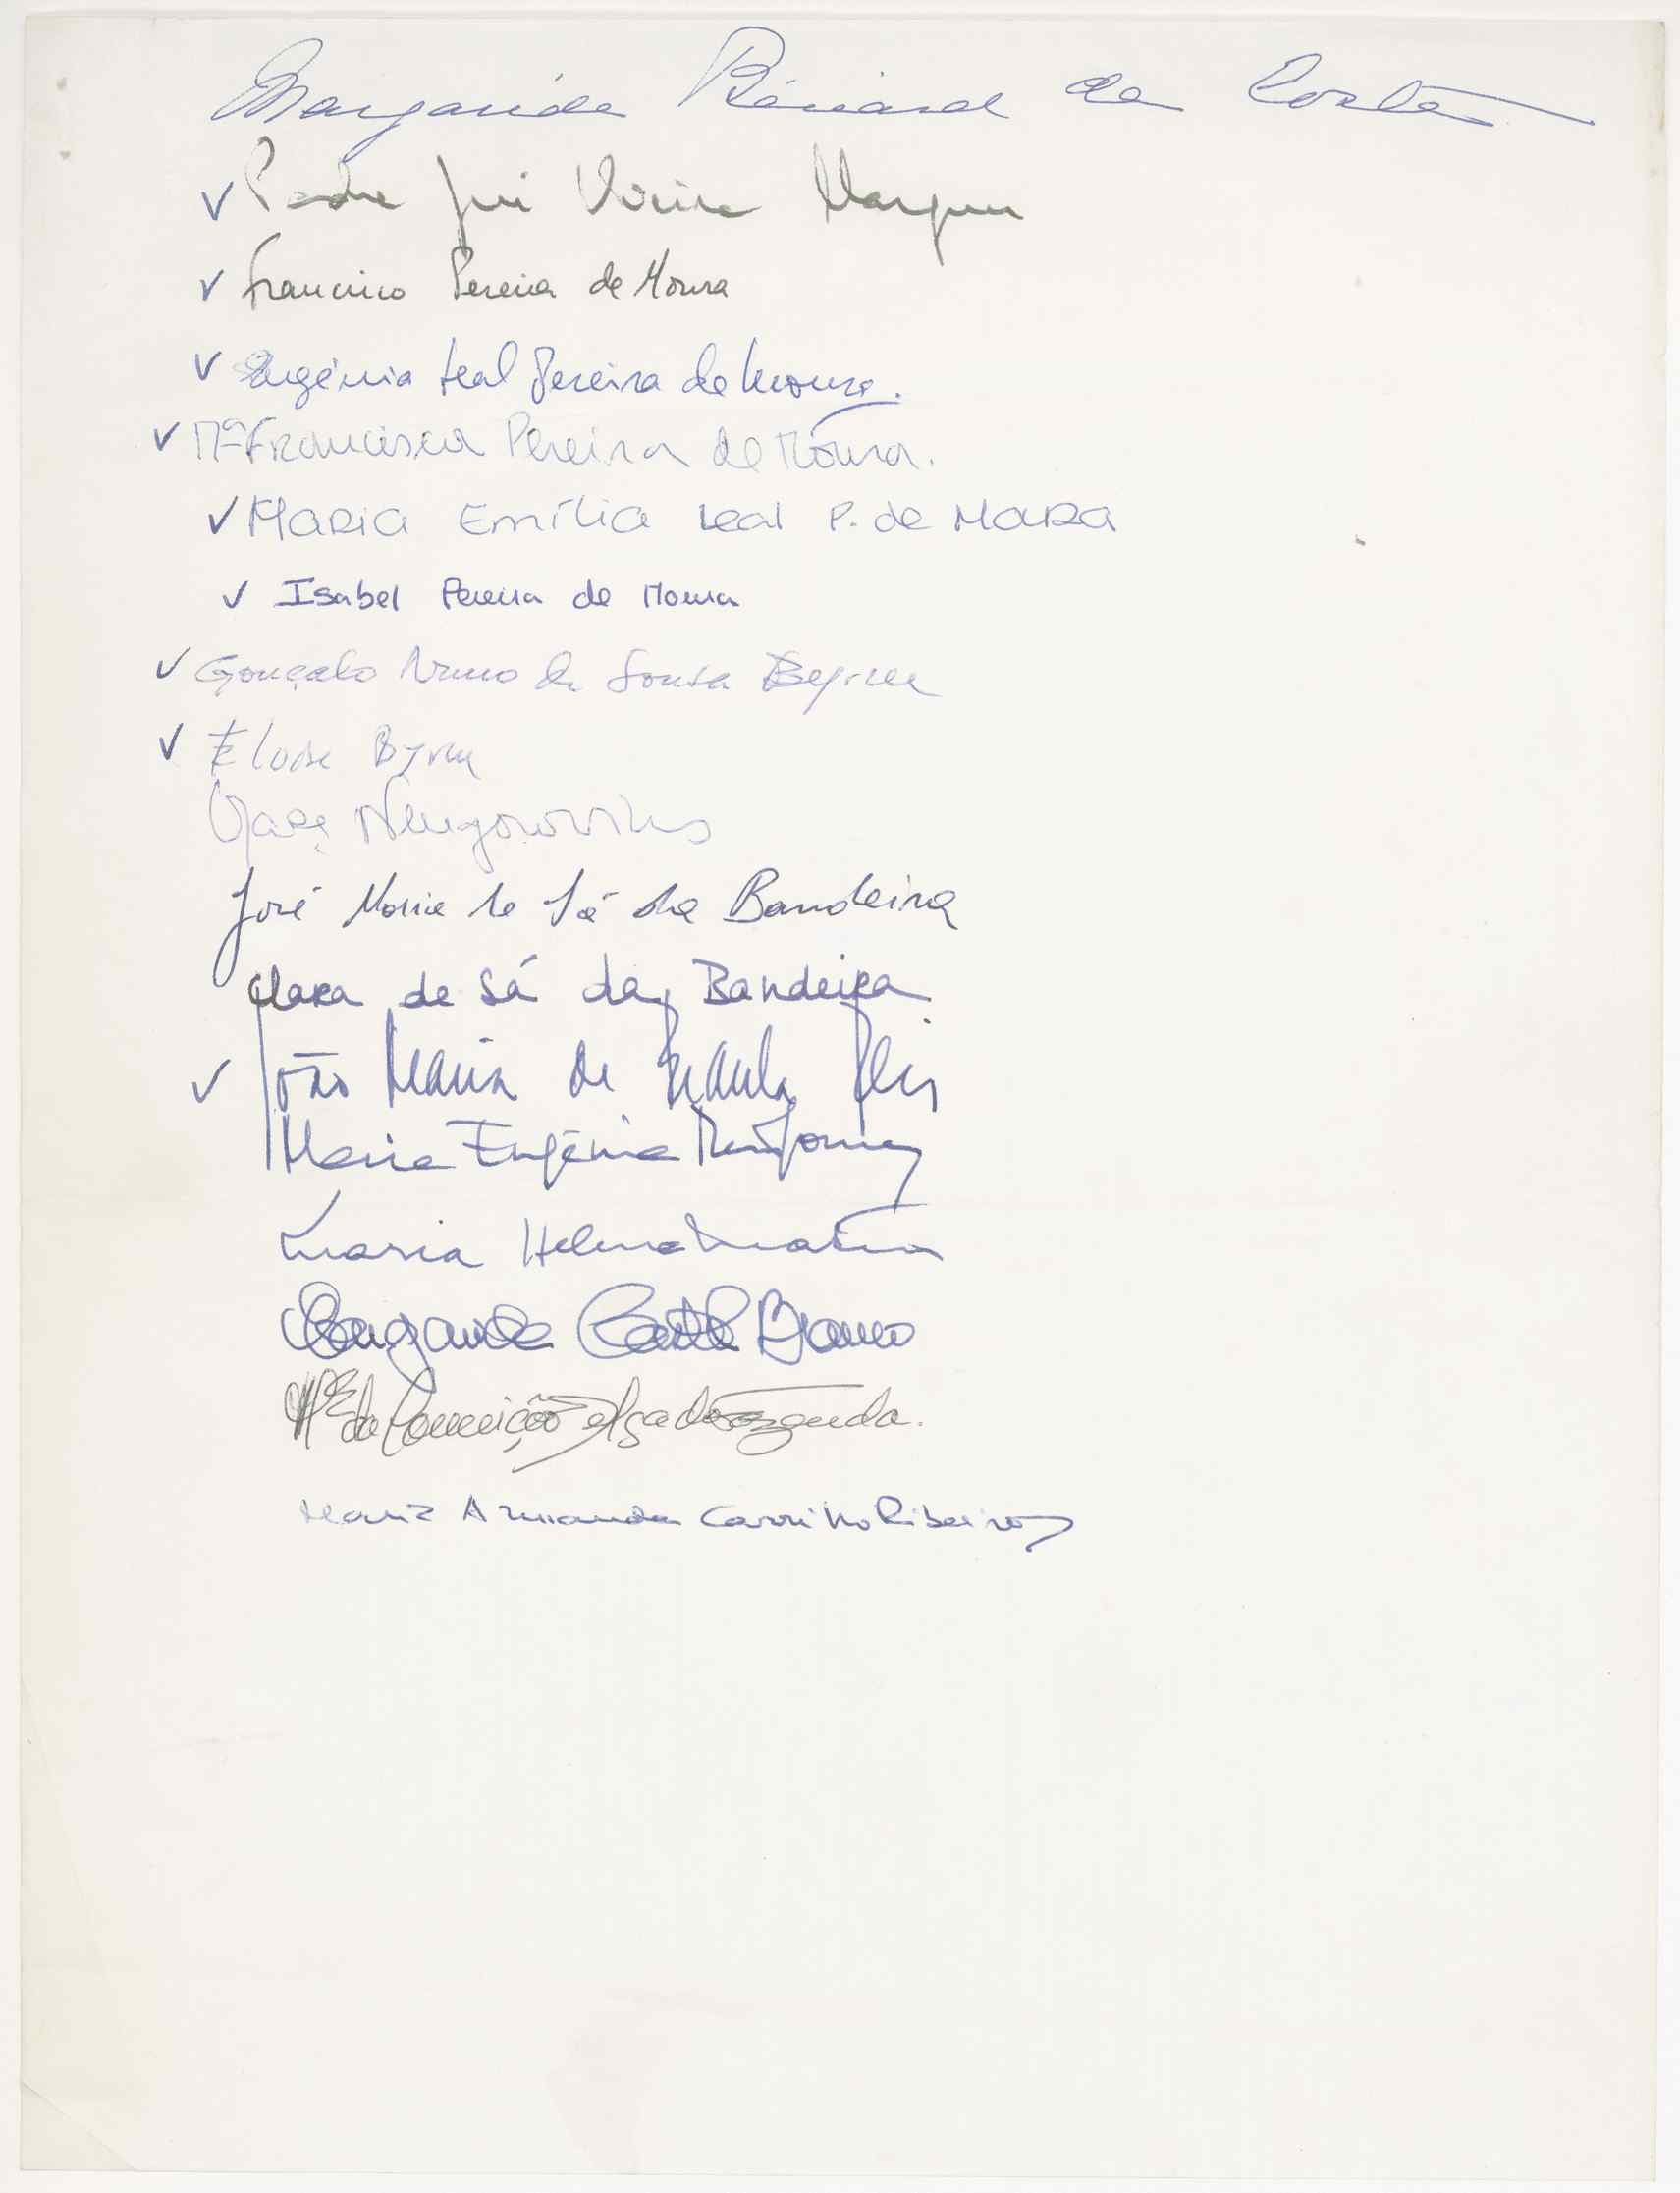 Margarida Bénard da Costa
✓ Padre José Vieira Marques
✓ Francisco Pereira de Moura
✓ Eugénia Leal Pereira de Moura.
✓ Mª Francisca Pereira de Moura.
✓ Maria Emília Leal P. de Moura
✓ Isabel Pereira de Moura
✓ Gonçalo Nuno de Sousa Byrne
✓ Eloise Byrne
Nengorovitus
José Maria de Sá da Bandeira
Clara de Sá da Bandeira
✓ João Maria de Paula
Maria Eugénia
Maria Helena
Margarida Castelo Branco
Mª da Conceição
Maria Armanda Carrilho Ribeiro